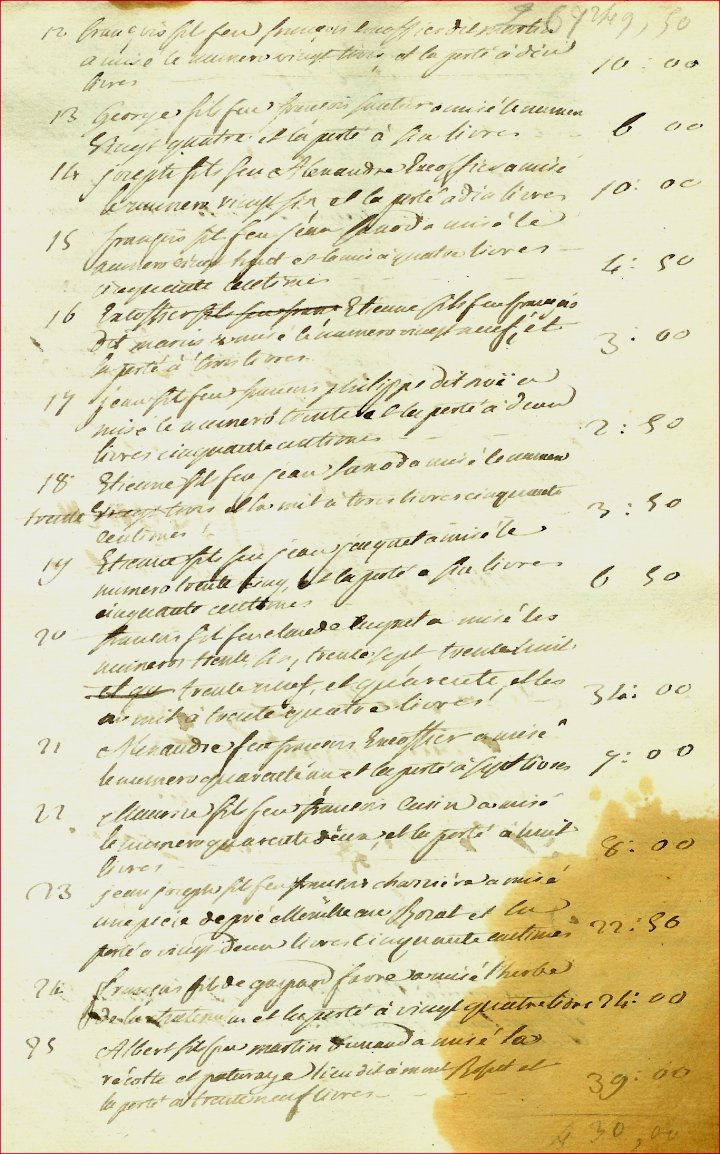 249,50
12 françois fil feu françois Encoffier dit
a misé le numero vingt trois et la porté à dix
livres 10 : 00
13 George fils feu françois a misé le numero
vingt quatre et la porté à six livres 6 00
14 joseph fils feu Alexandre Encoffier a misé
le numero vingt six et la porté a dix livres 10 : 00
15 françois fil feu jean a misé le
numero vingt huit et le mis a quatre livres
cinquante centimes 4 : 50
16 Encoffier fils feu fran Etienne fils feu françois
dit a misé le numero vingt neuf, et
la porté à trois livres 3 : 00
17 jean fil feu francois philippe dit a
misé le numero trente et la porté a deux
livres cinquante centimes 2 : 50
18 Etienne fil feu jean a misé le numero
trente trois et la mit à trois livres cinquante
centimes 3 : 50
19 Etienne fils feu jean jacquet a misé le
numero trente cinq, et la porté a six livres
cinquante centimes 6 50
20 francois fil feu claude a misé les
numeros trente six, trente sept trente huit
et qu trente neuf, et quarente, et les
a mit à trente quatre livres 34 : 00
21 Alexandre feu françois Encoffier a misé
le numero quarante un et la porté à sept livres 7 : 00
22 Maurice fil feu francois a misé
le numero quarente deux, et la porté a huit
livres 8 : 00
23 jean joseph fil feu francois charrière a misé
une piece de pré au et la
porté a vingt deux livres cinquante centimes 22 : 50
24 françois fil de gaspard favre a misé l'herbe
de la et la porté à vingt quatre livre 24 : 00
25 Albert fil feu martin a misé la
récolte et paturage lieu dit à mont et
la porté a trente neuf livres 39 : 00
430,00